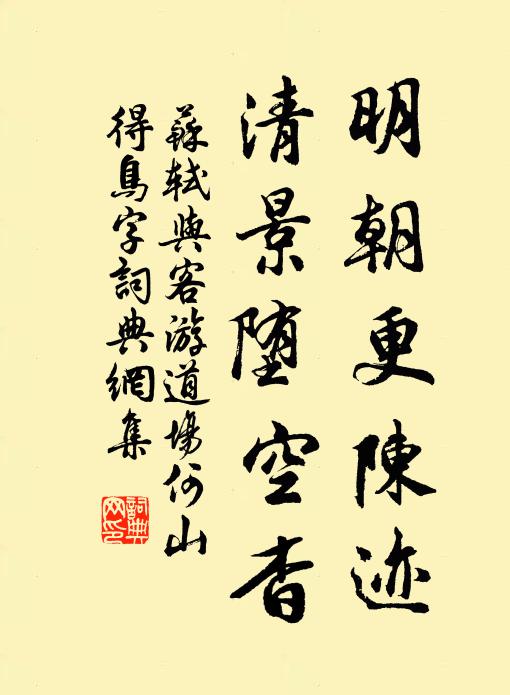 明朝更陳迹
清景墮空杳
蘇軾與客游道場何山
得鳥字詞典網集
詞典網印